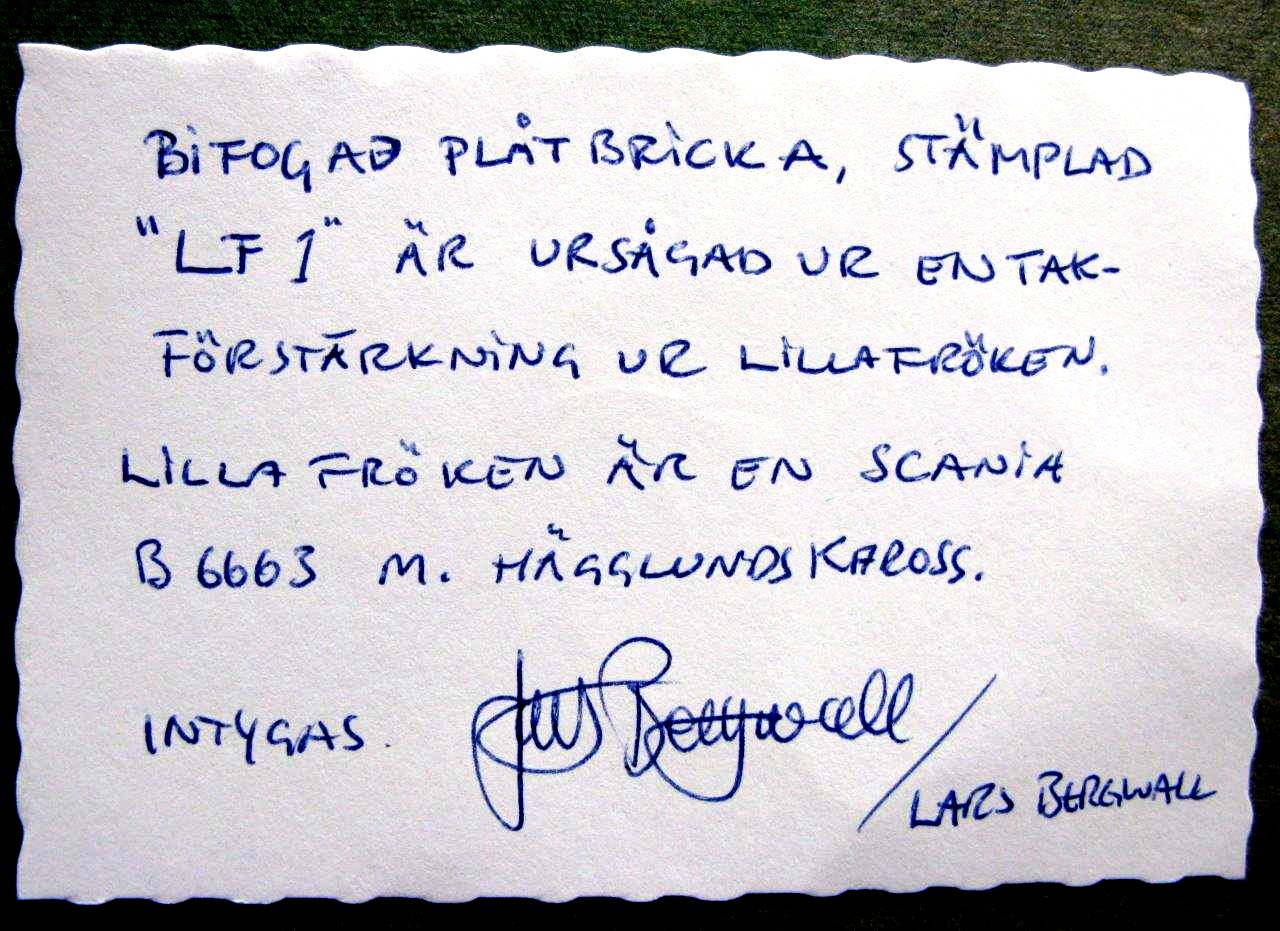 BIFOGAD PLÅTBRICKA, STÄMPLAD
"LF 1" ÄR URSÅGAD UR EN TAK-
FÖRSTÄRKNING UR LILLAFRÖKEN.
LILLA FRÖKEN ÄR EN SCANIA
B 6663 M. HÄGGLUNDSKAROSS.
INTYGAS. Lars Bergwall
/ LARS BERGWALL